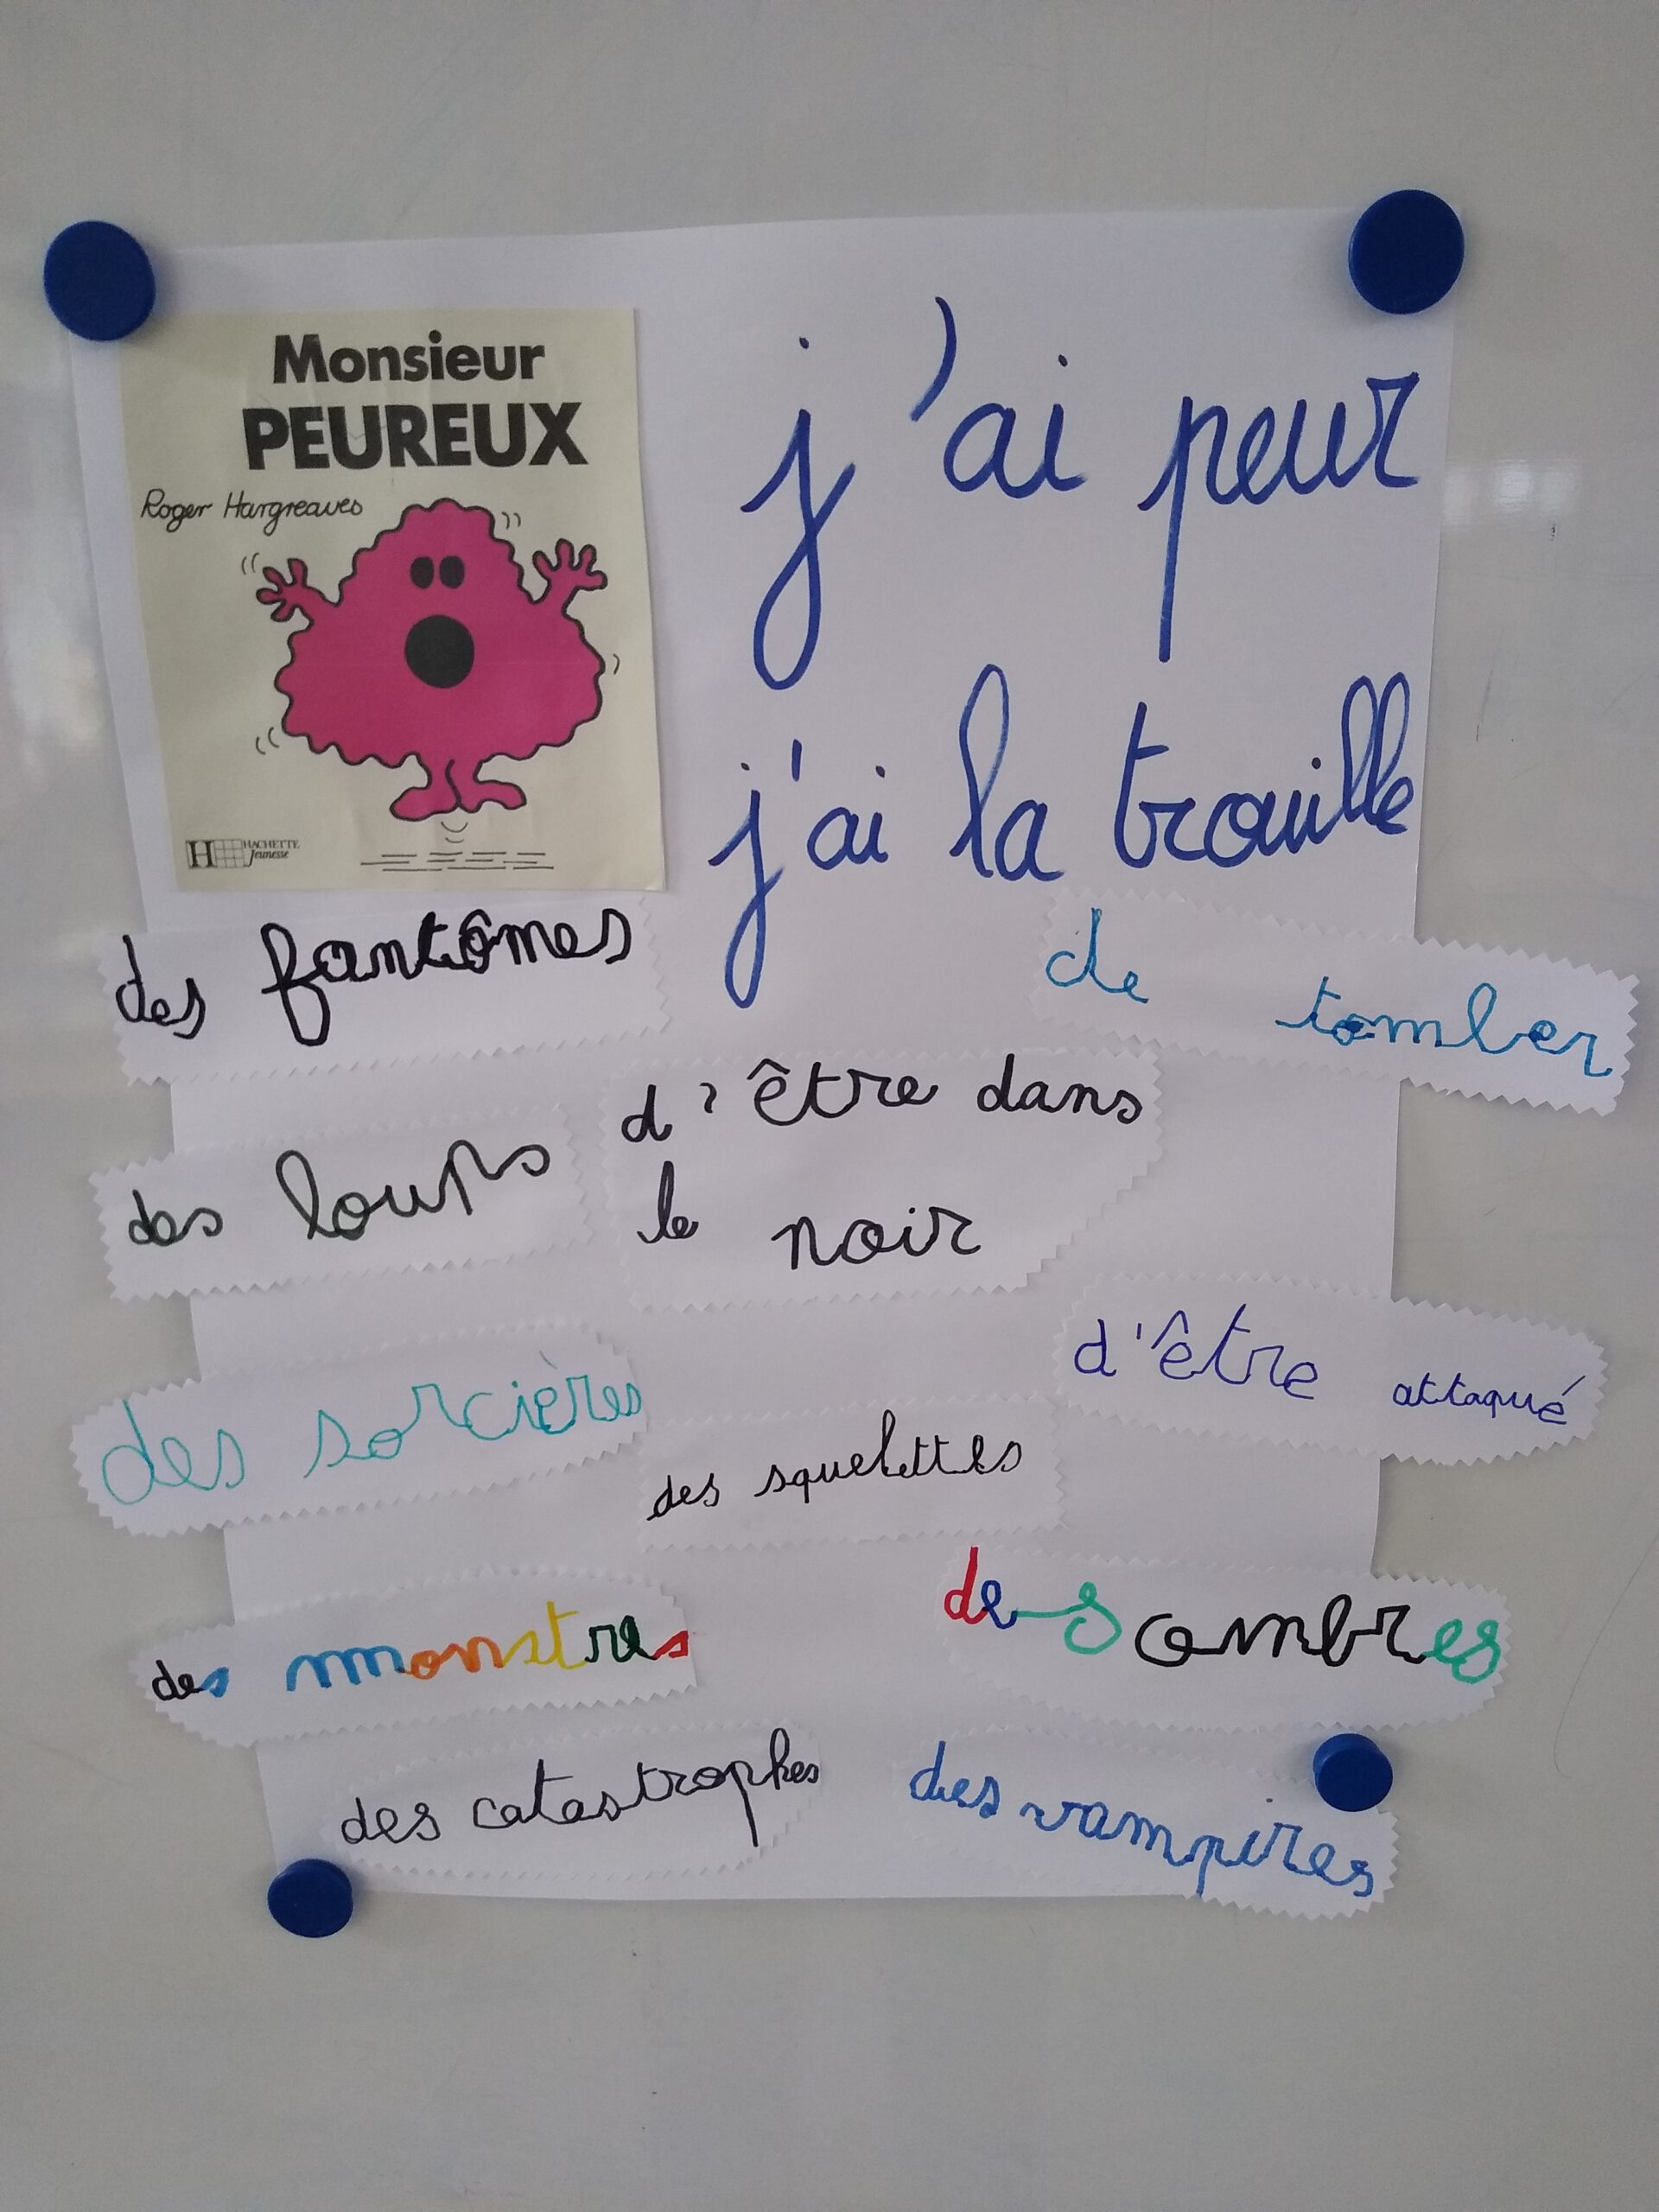 Monsieur
PEUREUX
Roger Hargreaves
H HACHETTE
Jeunesse
j'ai peur
j'ai la trouille
des fantômes
de tomber
d'être dans
le noir
des loups
d'être attaqué
des sorcières
des squelettes
des monstres
des ombres
des catastrophes
des vampires